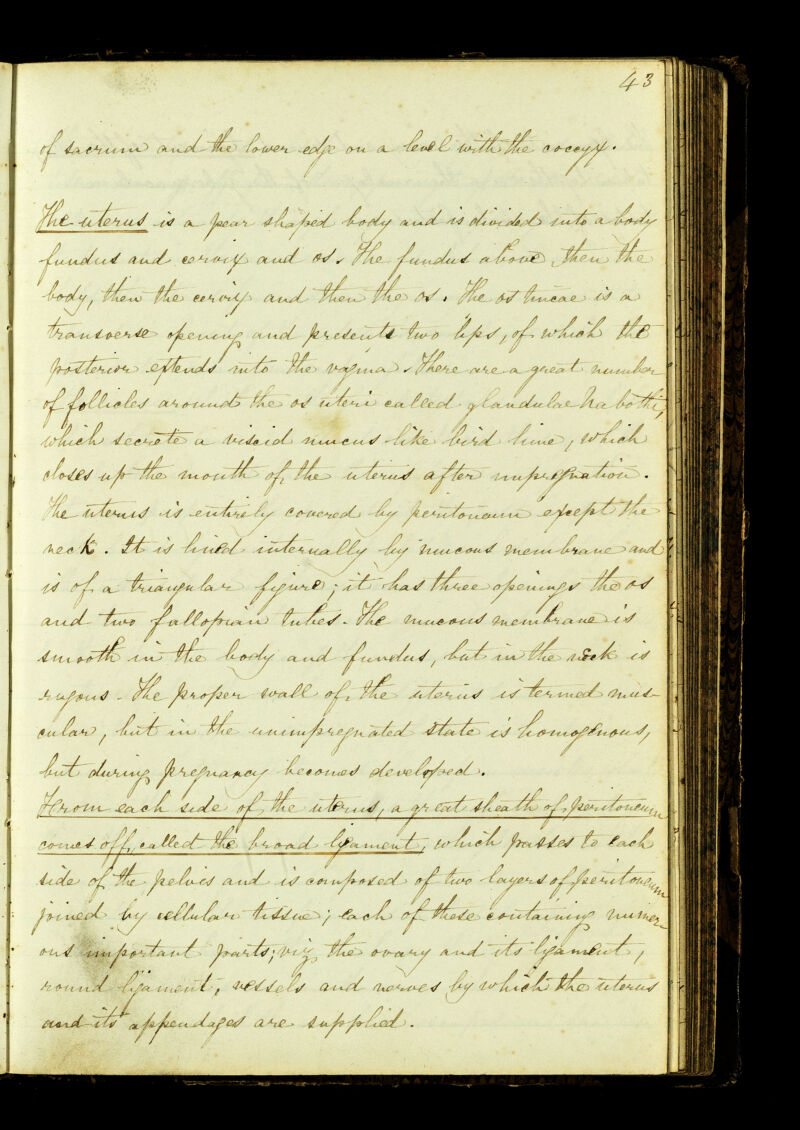 43
of sacrum and the lower edge on a level with the coccyx.
The uterus is a pear shaped body and is divided into a body
fundus and cervix and os. The fundus above, then the
body, then the cervix and then the os. The os tincae is a
transverse opening and presents two lips, of which the
posterior extends into the vagina. There are a great number
of follicles around the os uteri called glandulae Nabothi,
which secrete a viscid mucus like bird lime, which
closes up the mouth of the uterus after impregnation.
The uterus is entirely covered by peritonaeum except the
neck. It is lined internally by mucous membrane and
is of a triangular figure; it has three openings the os
and two fallopian tubes. The mucous membrane is
smooth in the body and fundus, but in the neck is
rugous. The proper wall of the uterus is termed mus-
cular, but in the unimpregnated state is homogenous,
but during pregnancy becomes developed.
From each side of the uterus, a great sheath of peritoneum
comes off, called the broad ligament, which passes to each
side of the pelvis and is composed of two layers of peritoneum
joined by cellular tissue; each of these containing numer-
ous important parts; viz the ovary and its ligament,
round ligament, vessels and nerves by which the uterus
and its appendages are supplied.